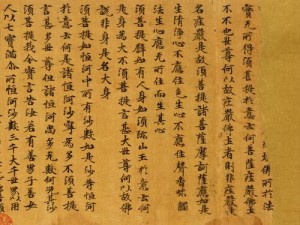 佛所於法
實无所得須菩提於意云何菩薩莊嚴佛土
不不也世尊何以故莊嚴佛土者則非莊嚴是
名莊嚴是故須菩提諸菩薩摩訶薩應如是
生清淨心不應住色生心不應住聲香味觸
法生心應无所住而生其心
須菩提譬如有人身如須彌山王於意云何
是身為大不須菩提言甚大世尊何以故佛
說非身是名大身
須菩提如恒河中所有沙數如是沙等恒河
於意云何是諸恒河沙寧為多不須菩提
言甚多世尊但諸恒河尚多无數何況其沙
須菩提我今實言告汝若有善男子善女
人以七寶滿尒所恒河沙數三千大千世界以用